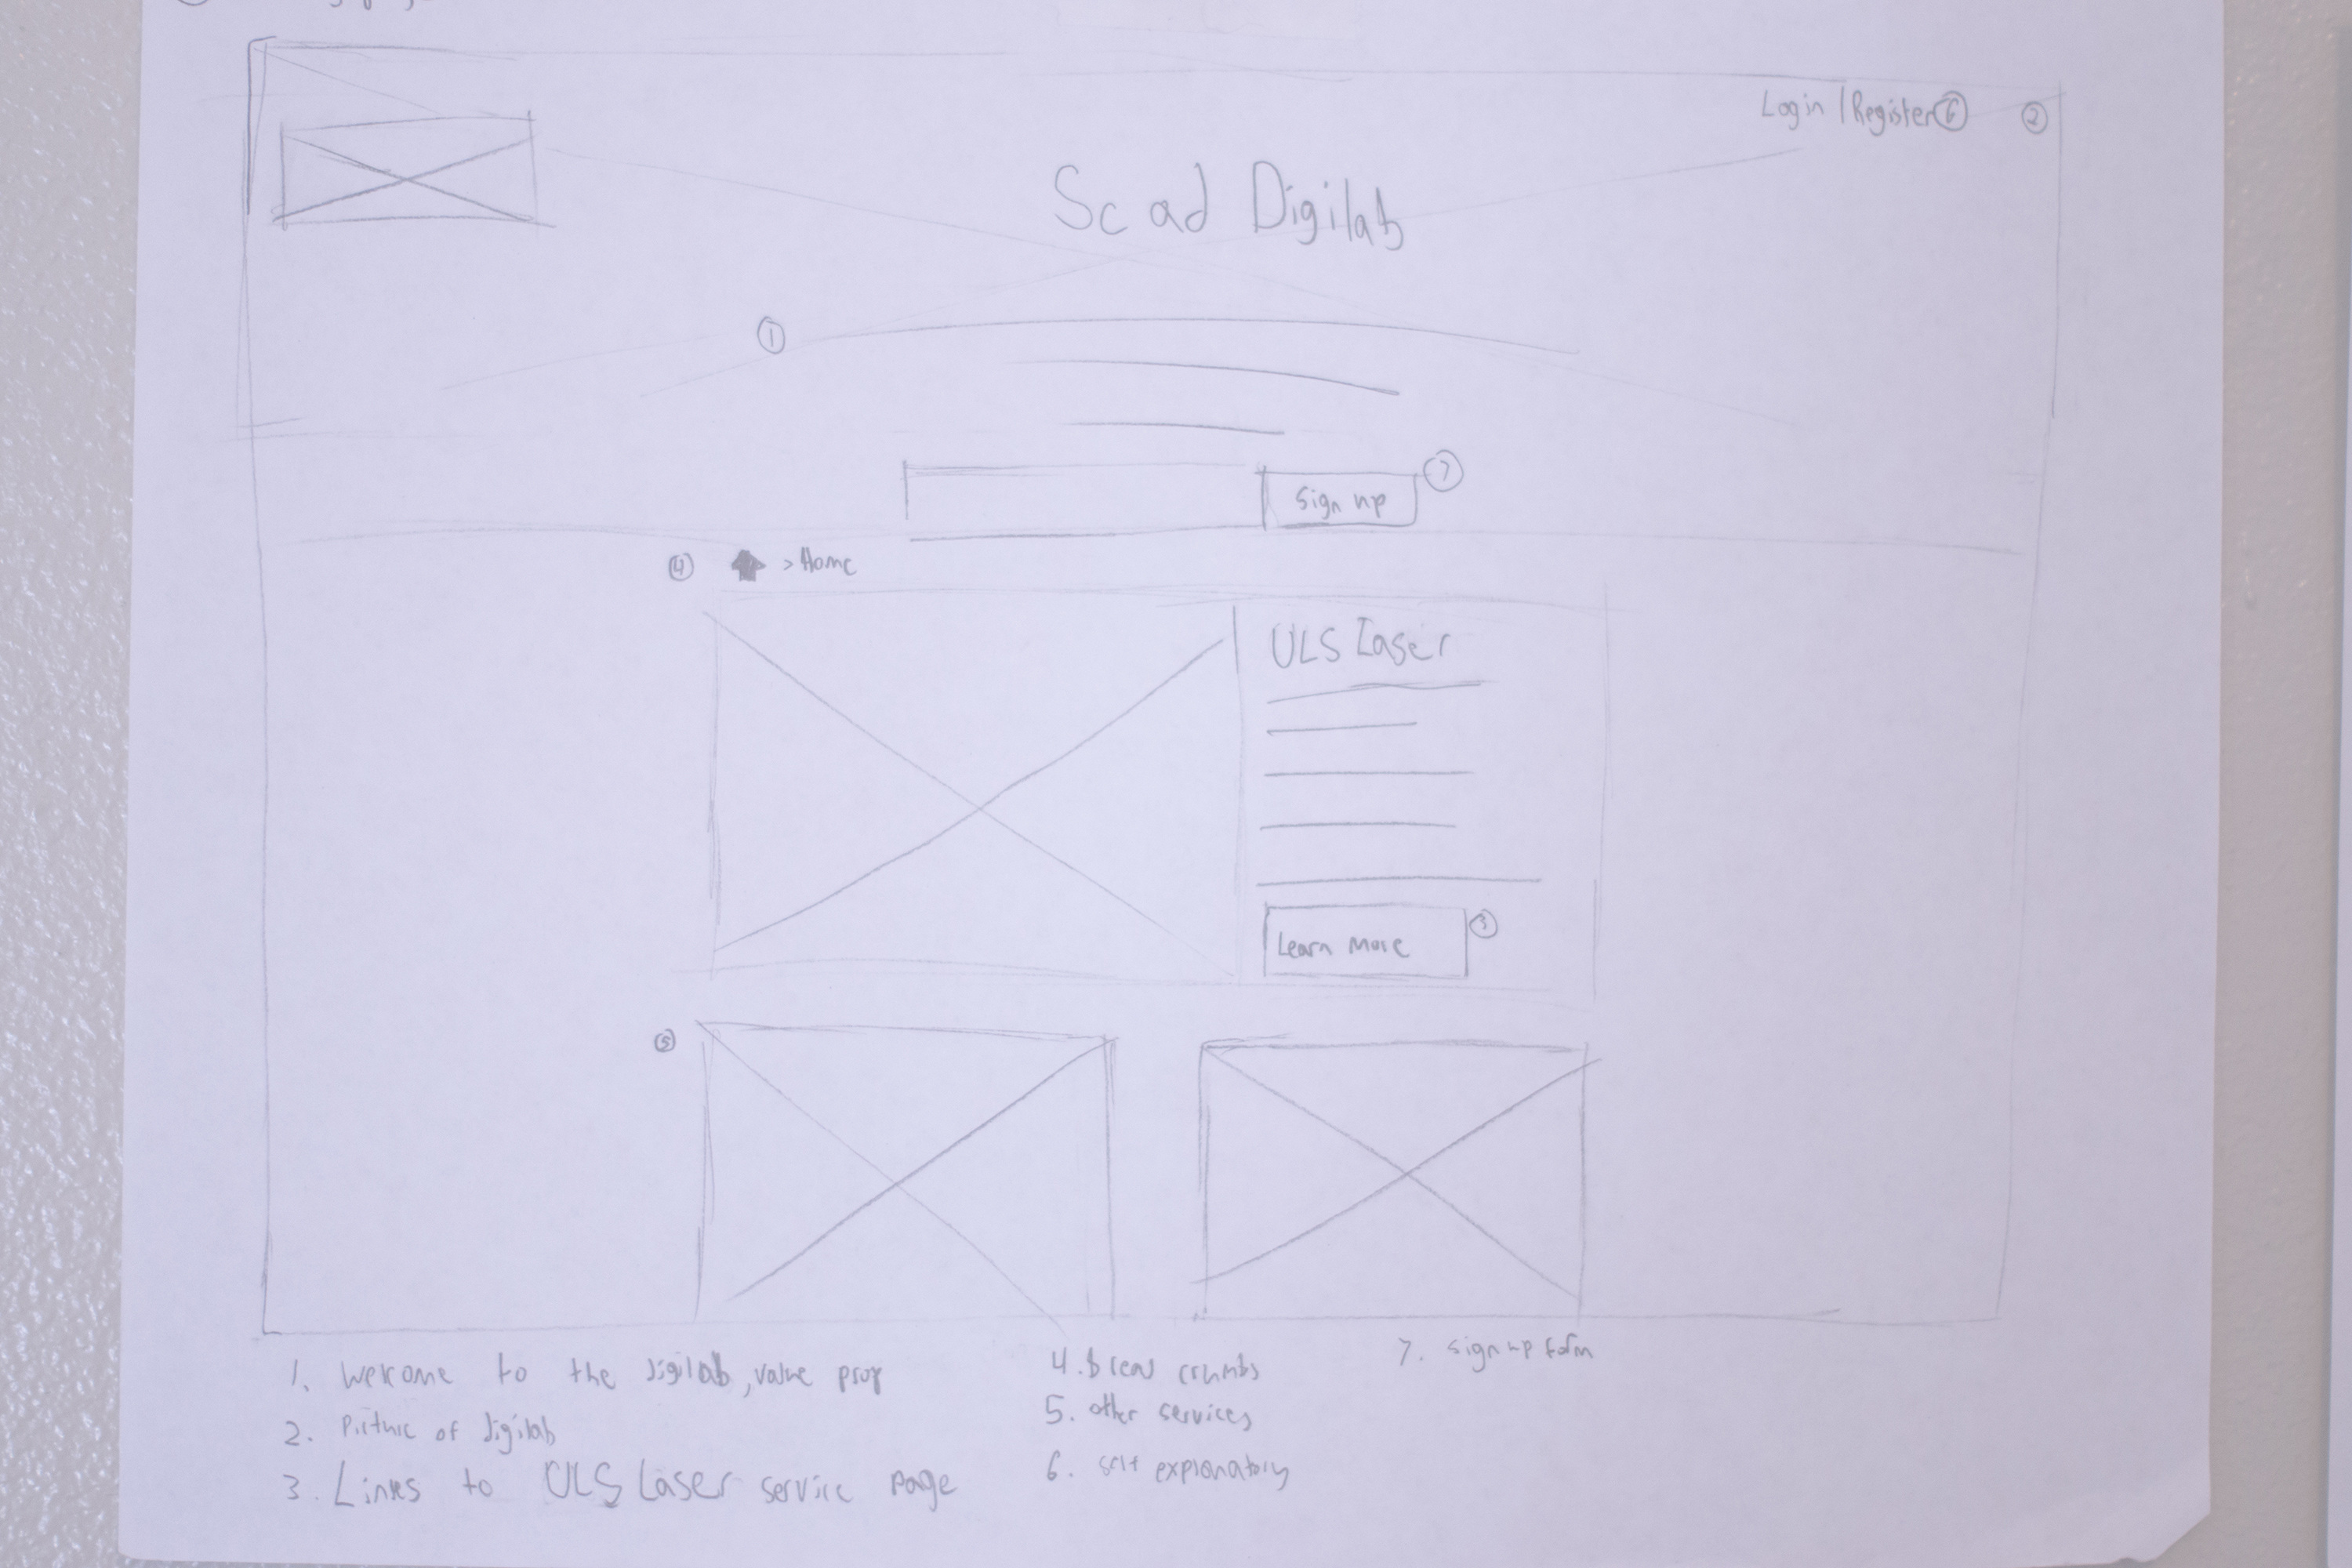 Login | Register 6 2
Scad Digilab
1
Sign up 7
4 > Home
ULS Laser
Learn More 3
5
1. Welcome to the digilab, value prop
2. Picture of digilab
3. Links to ULS Laser service page
4. bread crumbs
5. other services
6. self explanatory
7. sign up form